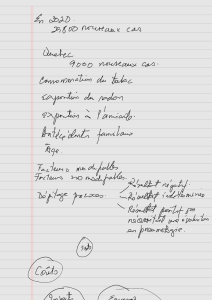 En 2020
29800 nouveaux cas
Quebec
9000 nouveaux cas.
Consommation du tabac
exposition du radon
exposition à l'amiante.
Antécédents familiaux
Âge
Facteurs modifiables
Facteurs non modifiables.
Dépistage
Résultat négatif
Résultat indéterminé
Résultat positif
en pneumologie.
Coûts